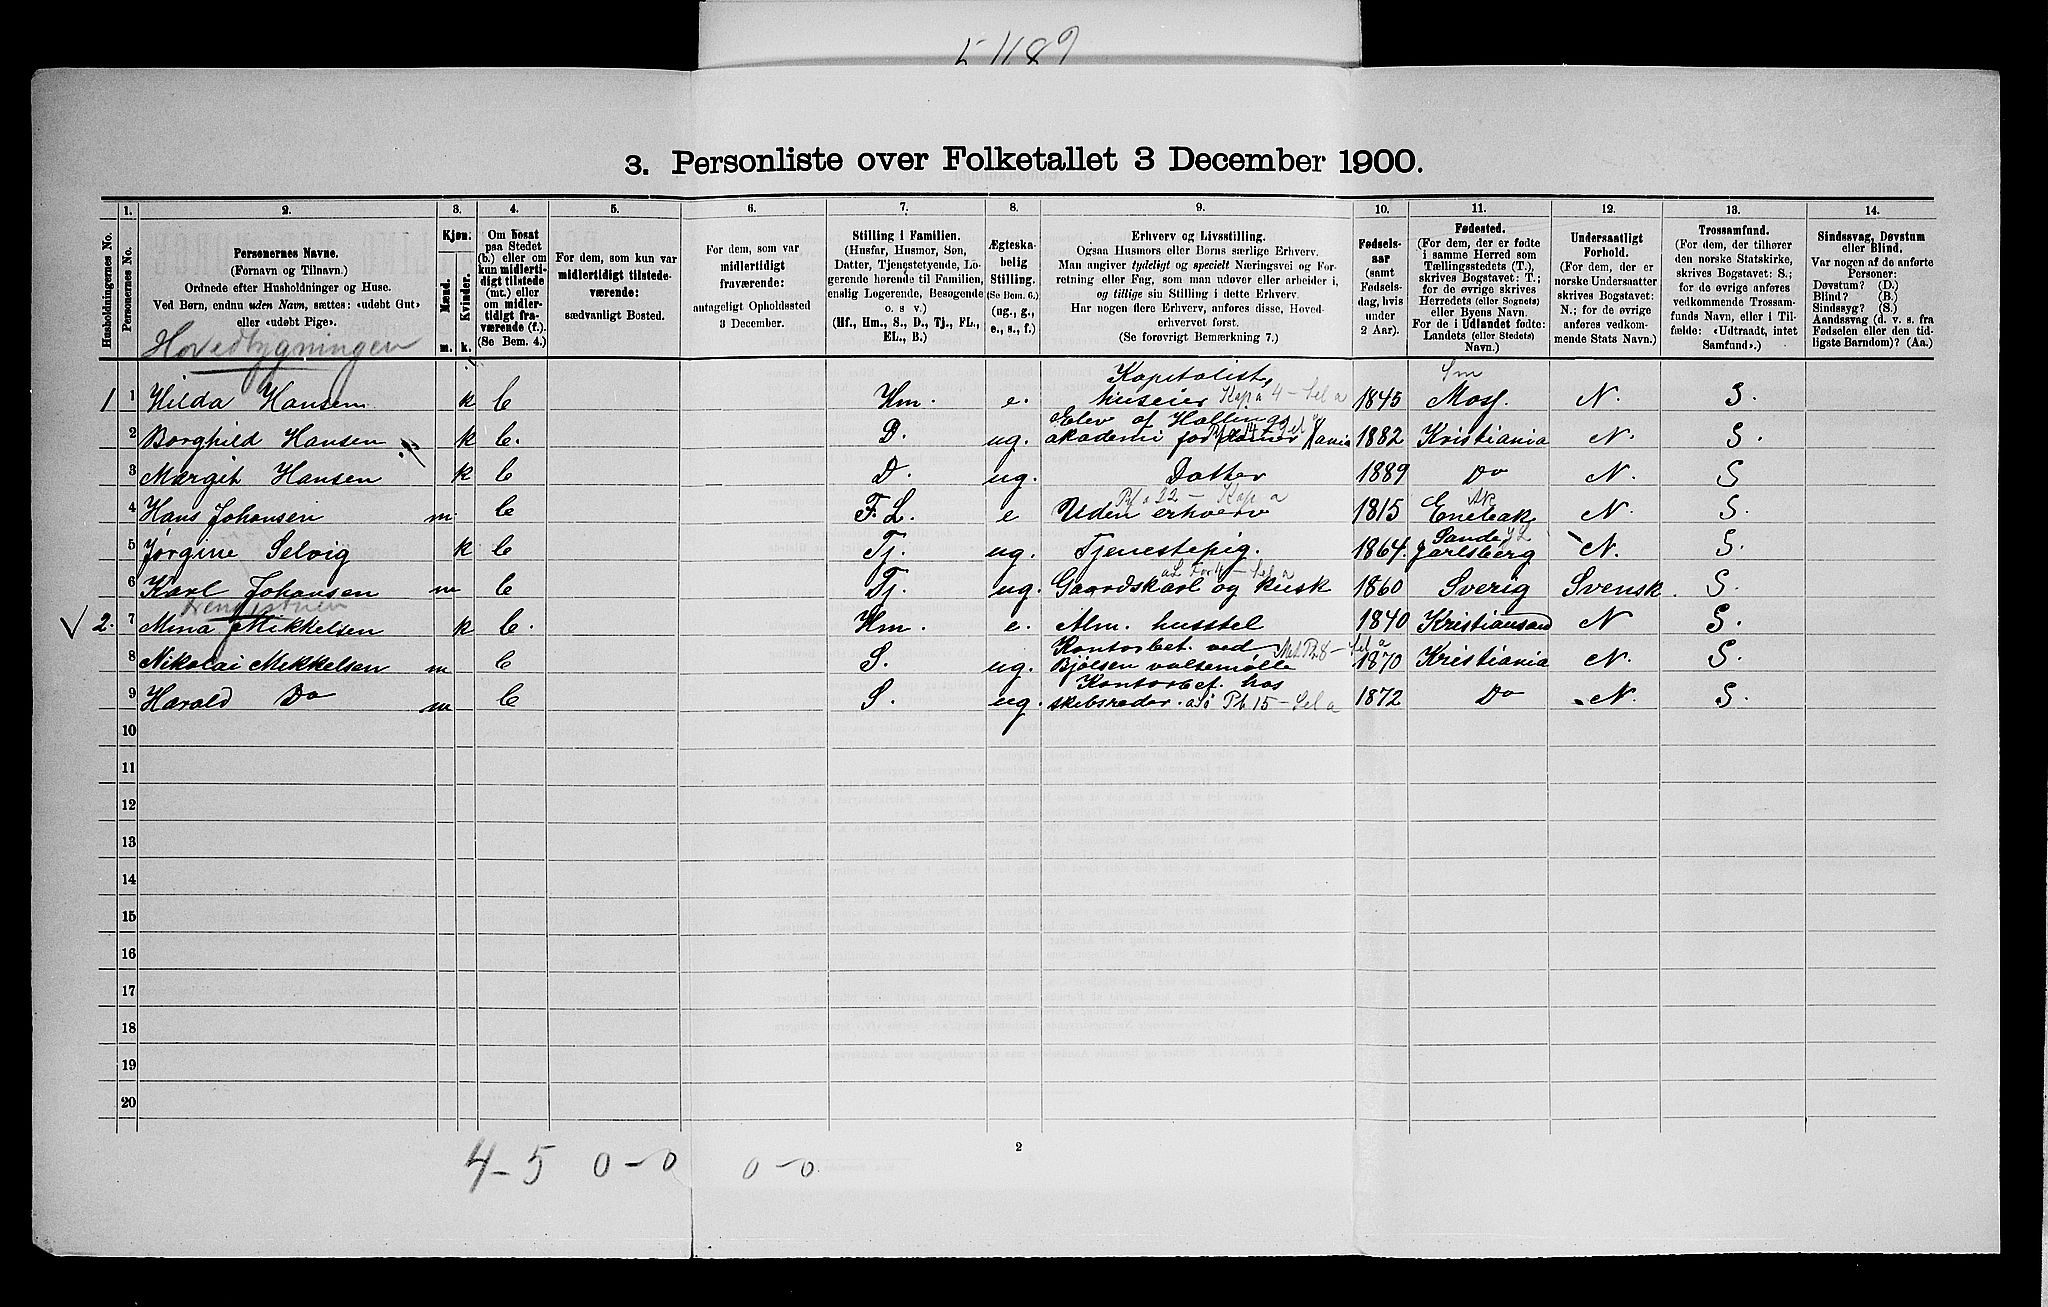 5489
3. Personliste over Folketallet 3 December 1900.
1. 2. 3. 4. 5. 6. 7. 8. 9. 10. 11. 12. 13. 14.
Husholdningernes No.
Personernes No.
Personernes Navne.
(Fornavn og Tilnavn.)
Ordnede efter Husholdninger og Huse.
Ved Børn, endnu uden Navn, sættes: «udøbt Gut»
eller «udøbt Pige».
Hovedbygningen
Kjøn.
Mænd.
Kvinder.
m. k.
Om bosat
paa Stedet
(b.) eller om
kun midlerti-
digt tilstede
(mt.) eller
om midler-
tidigt fra-
værende (f.).
(Se Bem. 4.)
For dem, som kun var
midlertidigt tilstede-
værende:
sædvanligt Bosted.
For dem, som var
midlertidigt
fraværende:
antageligt Opholdssted
3 December.
Stilling i Familien.
(Husfar, Husmor, Søn,
Datter, Tjenestetyende, Lo-
gerende hørende til Familien,
enslig Logerende, Besøgende
o. s. v.)
(Hf., Hm., S., D., Tj., FL.,
EL., B.)
Ægteska-
belig
Stilling.
(Se Bem. 6.)
(ug., g.,
e., s., f.)
Erhverv og Livsstilling.
Ogsaa Husmors eller Børns særlige Erhverv.
Man angiver tydeligt og specielt Næringsvei og For-
retning eller Fag, som man udøver eller arbeider i,
og tillige sin Stilling i dette Erhverv.
Har nogen flere Erhverv, anføres disse, Hoved-
erhvervet først.
(Se forøvrigt Bemærkning 7.)
Fødsels-
aar
(samt
Fødsels-
dag, hvis
under
2 Aar).
Fødested.
(For dem, der er fødte
i samme Herred som
Tællingsstedets (T.),
skrives Bogstavet: T.;
for de øvrige skrives
Herredets (eller Sognets)
eller Byens Navn.
For de i Udlandet fødte:
Landets (eller Stedets)
Navn.)
Undersaatligt
Forhold.
(For dem, der er
norske Undersaatter
skrives Bogstavet:
N.; for de øvrige
anføres vedkom-
mende Stats Navn.)
Trossamfund.
(For dem, der tilhører
den norske Statskirke,
skrives Bogstavet: S.;
for de øvrige anføres
vedkommende Trossam-
funds Navn, eller i Til-
fælde: «Udtraadt, intet
Samfund».)
Sindssvag, Døvstum
eller Blind.
Var nogen af de anførte
Personer:
Døvstum? (D.)
Blind? (B.)
Sindssyg? (S.)
Aandssvag (d. v. s. fra
Fødselen eller den tid-
ligste Barndom)? (Aa.)
Kapitalist, Sm
1 1 Hilda Hansen k b Hm. e. huseier Kap a 4 - sel a 1845 Moss. N. S.
Elev af Hallings
2 Borghild Hansen k b. D. ug. akademi for damer Kania 1882 Kristiania N. S.
3 Margit Hansen k b D. ug. Datter 1889 Do N. S
Kap a Ak
4 Hans Johansen m. b F.L. e Uden erhverv 1815 Enebak N. S.
Sande
5 Jørgine Selvig k b Tj. ug. Tjenestepig. 1864. Jarlsberg N. S.
6 Karl Johansen m b Tj. ug. Gaardskarl og kusk 1860 Sverig Svensk. S.
2. 7 Mina Mikkelsen k b. Hm. e. Alm. husstel 1840 Kristiansand N S.
Kontorbet. ved
8 Nikolai Mekkelsen m b S. ug. Bjølsen valsemølle 1870 Kristiania N. S.
Kontorbet. hos
9 Harald Do m b S. ug. skibsreder. Pb 15 - sel a 1872 Do N. S.
10
11
12
13
14
15
16
17
18
19
20
4-5 0-0 0-0
2